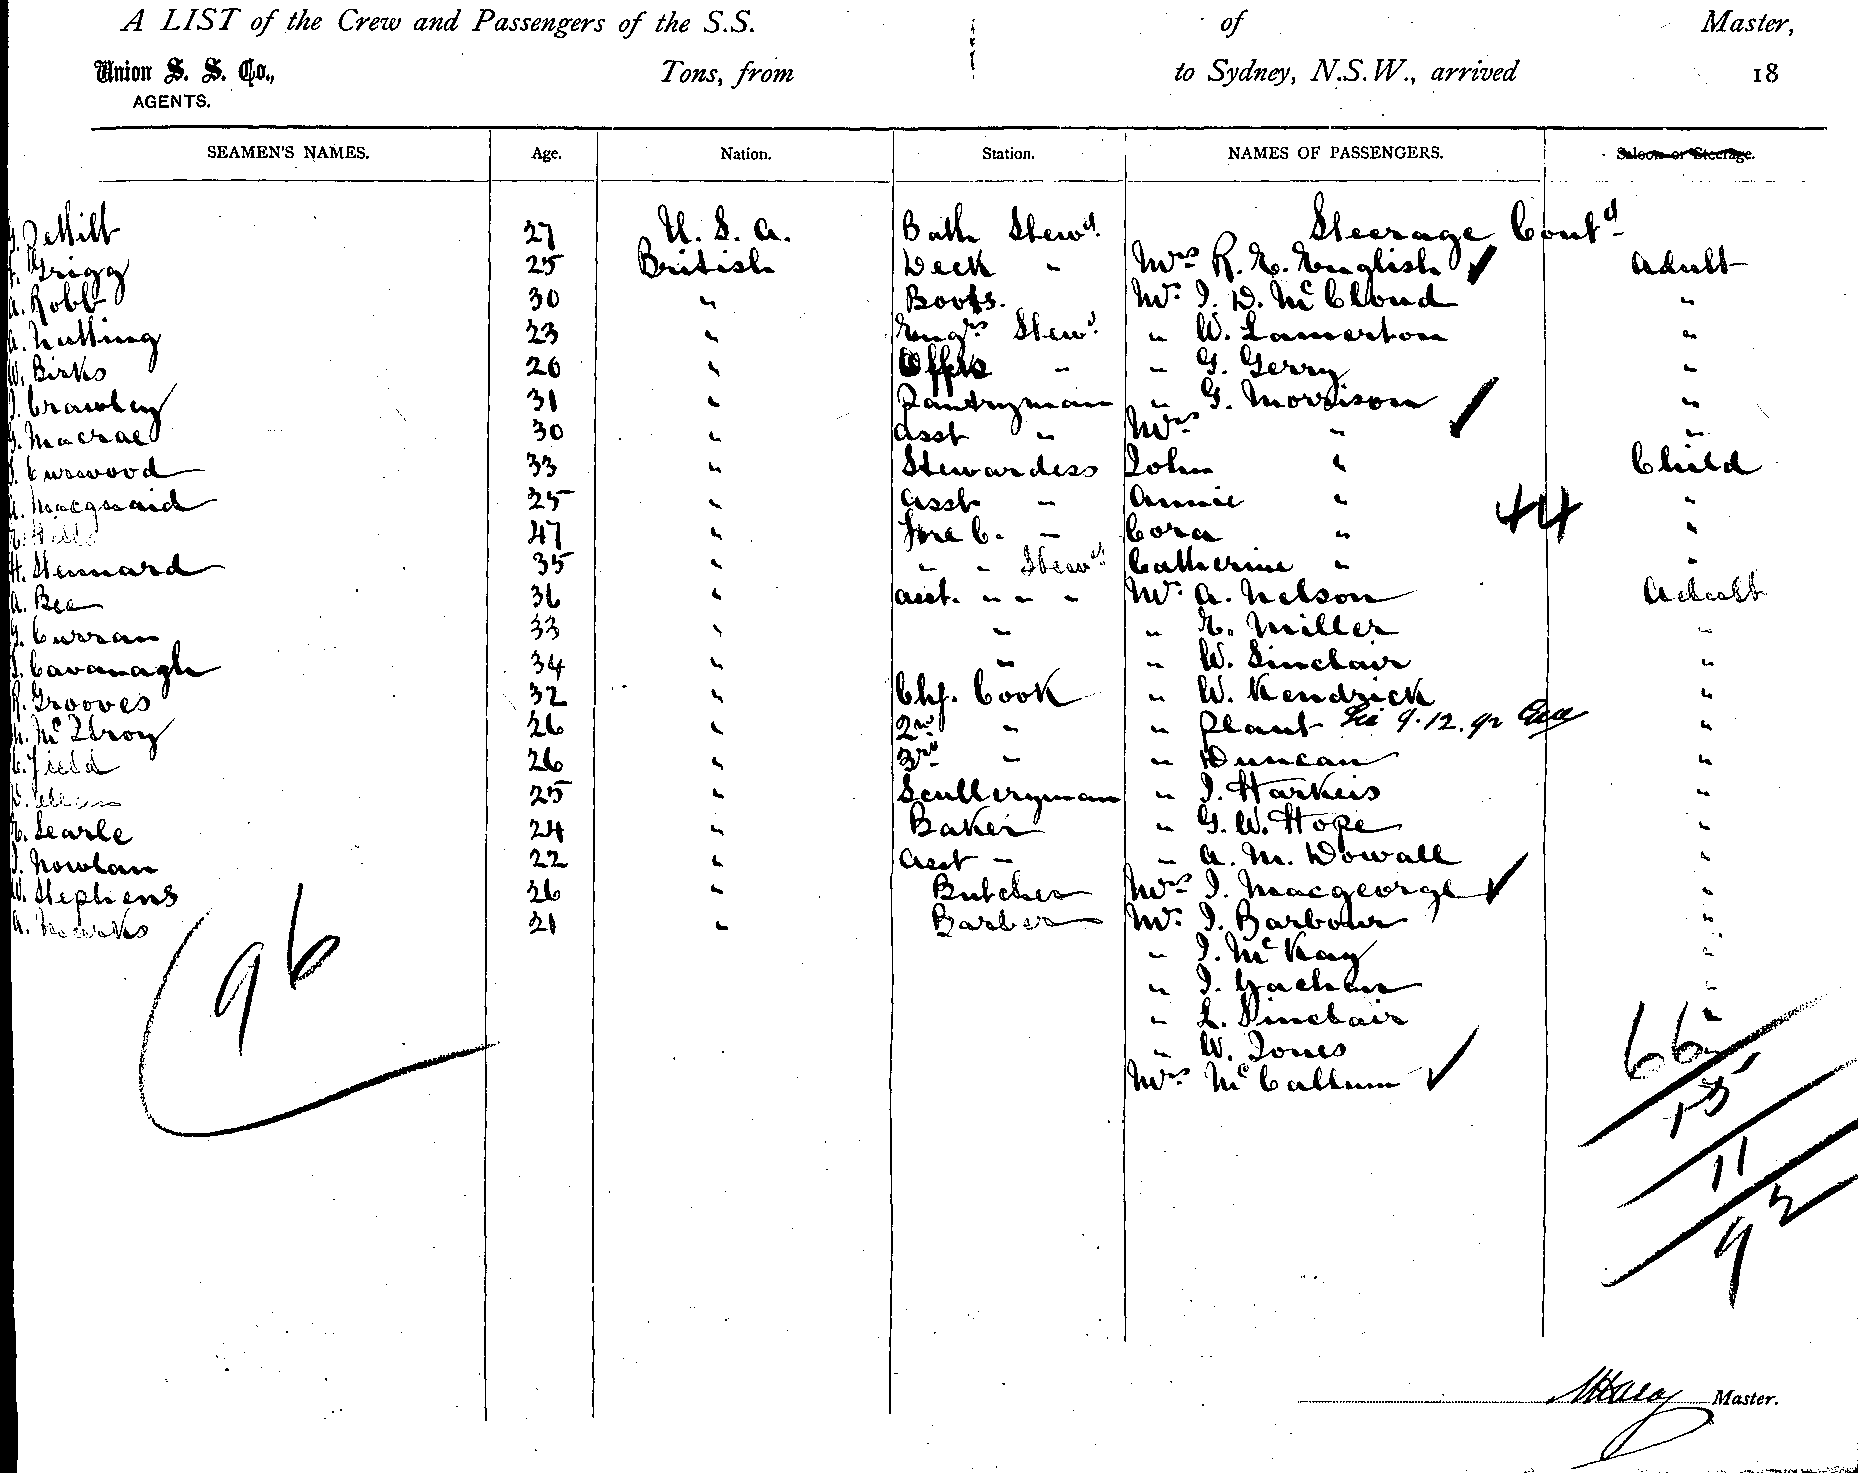 A LIST of the Crew and Passengers of the S.S. of Master,
Union S. S. Co., Tons, from to Sydney, N.S.W., arrived 18
AGENTS.
SEAMEN'S NAMES. Age. Nation. Station. NAMES OF PASSENGERS. Saloon or Steerage.
Steerage Contd
27 U. S. A. Bath Stewd.
Grigg 25 British Deck " Mrs R. E. English ✓ Adult
A. Robb 30 " Boots. Mr. J. D. McCloud "
Nutting 23 " Engrs Stewd. " W. Lamerton "
W. Birks 20 " Offrs " " G. Gerry "
Crawley 31 " Pantryman " G. Morrison ✓ "
Macrae 30 " Asst " Mrs " "
Curwood 33 " Stewardess John " Child
Macquaid 25 " Asst " Annie " "
Hills 47 " Fore C. " Cora " "
44
H. Stennard 35 " " " Stewd Catherine " "
A. Bee 36 " Asst. " " " Mr. A. Nelson Adult
Curran 33 " " " E. Miller "
Cavanagh 34 " " " W. Sinclair "
R. Grooves 32 " Chf. Cook " W. Kendrick "
McIlroy 26 " 2nd " " Plant 9.12.92 "
Field 26 " 3rd " " Duncan "
25 " Sculleryman " J. Harkeis "
Searle 24 " Baker " G. W. Hope "
Nowlan 22 " Asst " " A. M. Dowall "
W. Stephens 26 " Butcher Mrs J. Macgeorge ✓ "
A. Marks 21 " Barber Mr. J. Barbour "
96
" J. McKay "
" J. "
" L. Sinclair "
" W. Jones "
Mrs McCallum ✓
66
15
11
92
Master.